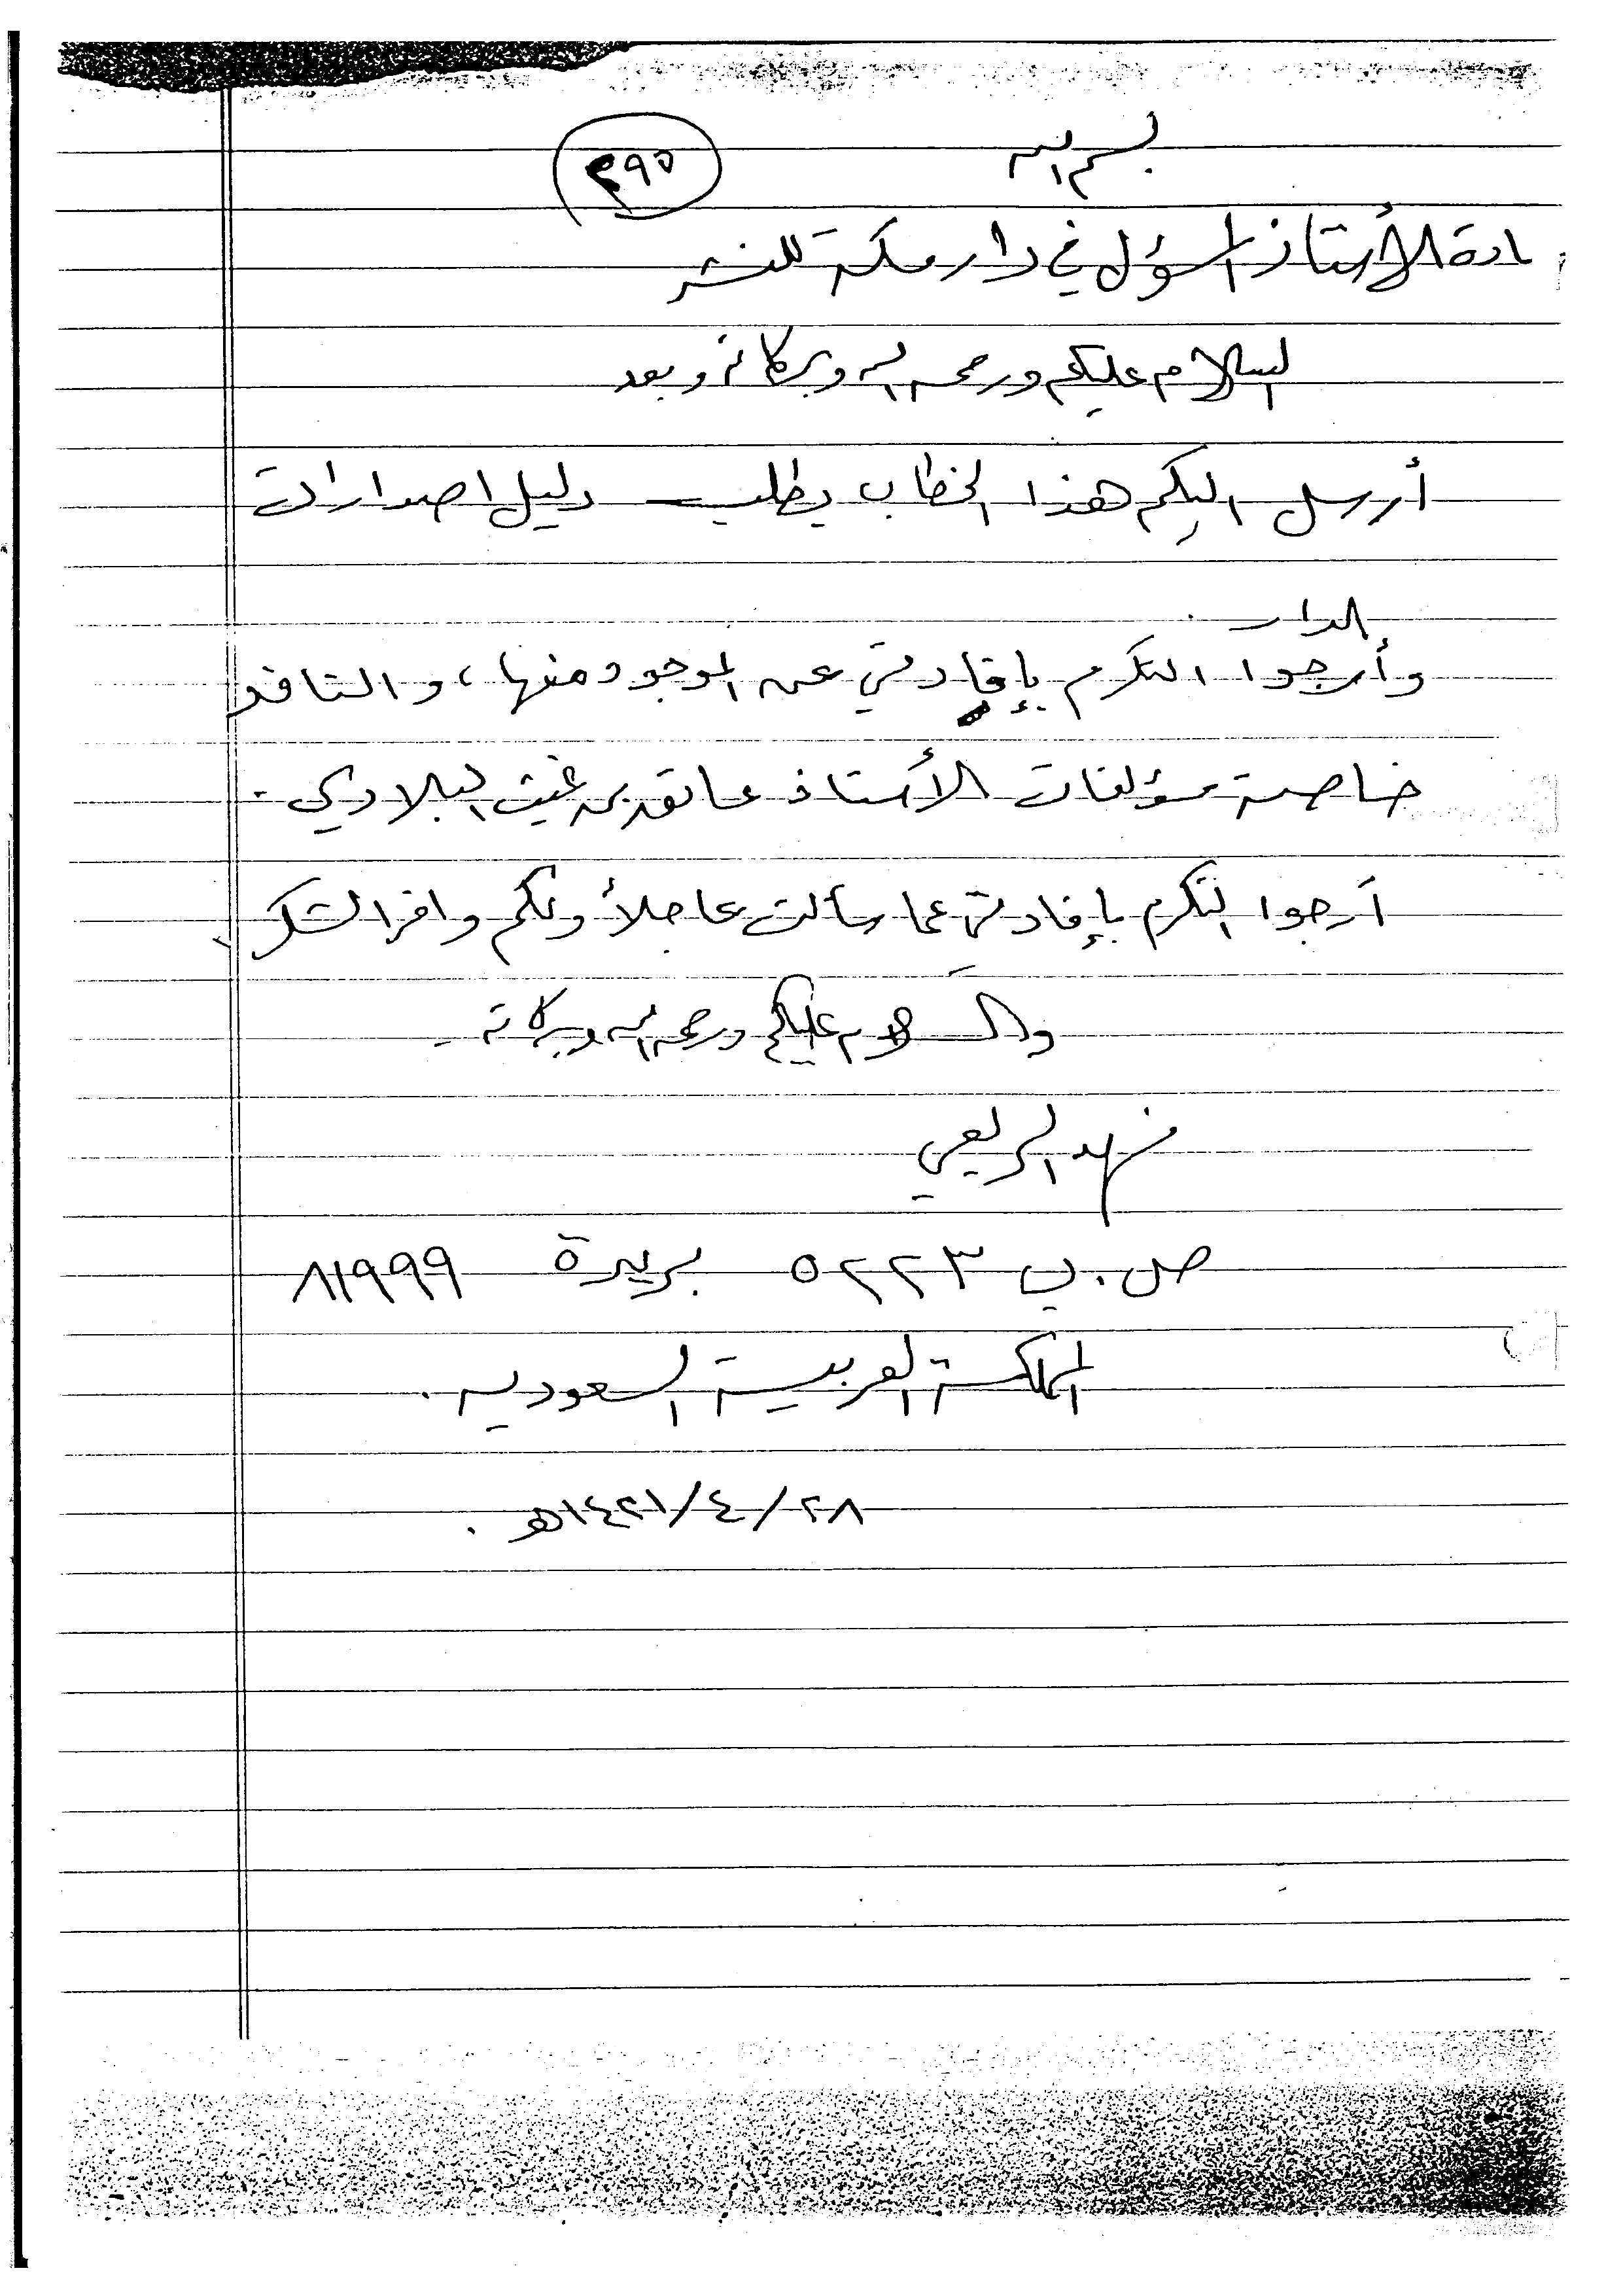 بسم الله
٣٩٥
سادة الأستاذ المسؤل في دار مكة للنشر
السلام عليكم ورحمة الله وبركاته وبعد
أرسل اليكم هذا الخطاب بطلب دليل اصدارات
الدار
وأرجوا التكرم بإفادتي عن الموجود منها، والنافد
خاصة مؤلفات الأستاذ عاتق بن غيث البلادي.
أرجوا التكرم بإفادتي عما سألت عاجلاً ولكم وافر الشكر
والسلام عليكم ورحمة الله وبركاته
فهد الربعي
ص.ب ٥٢٢٣ بريدة ٨١٩٩٩
المملكة العربية السعودية.
٢٨/٤/١٤٢١هـ.